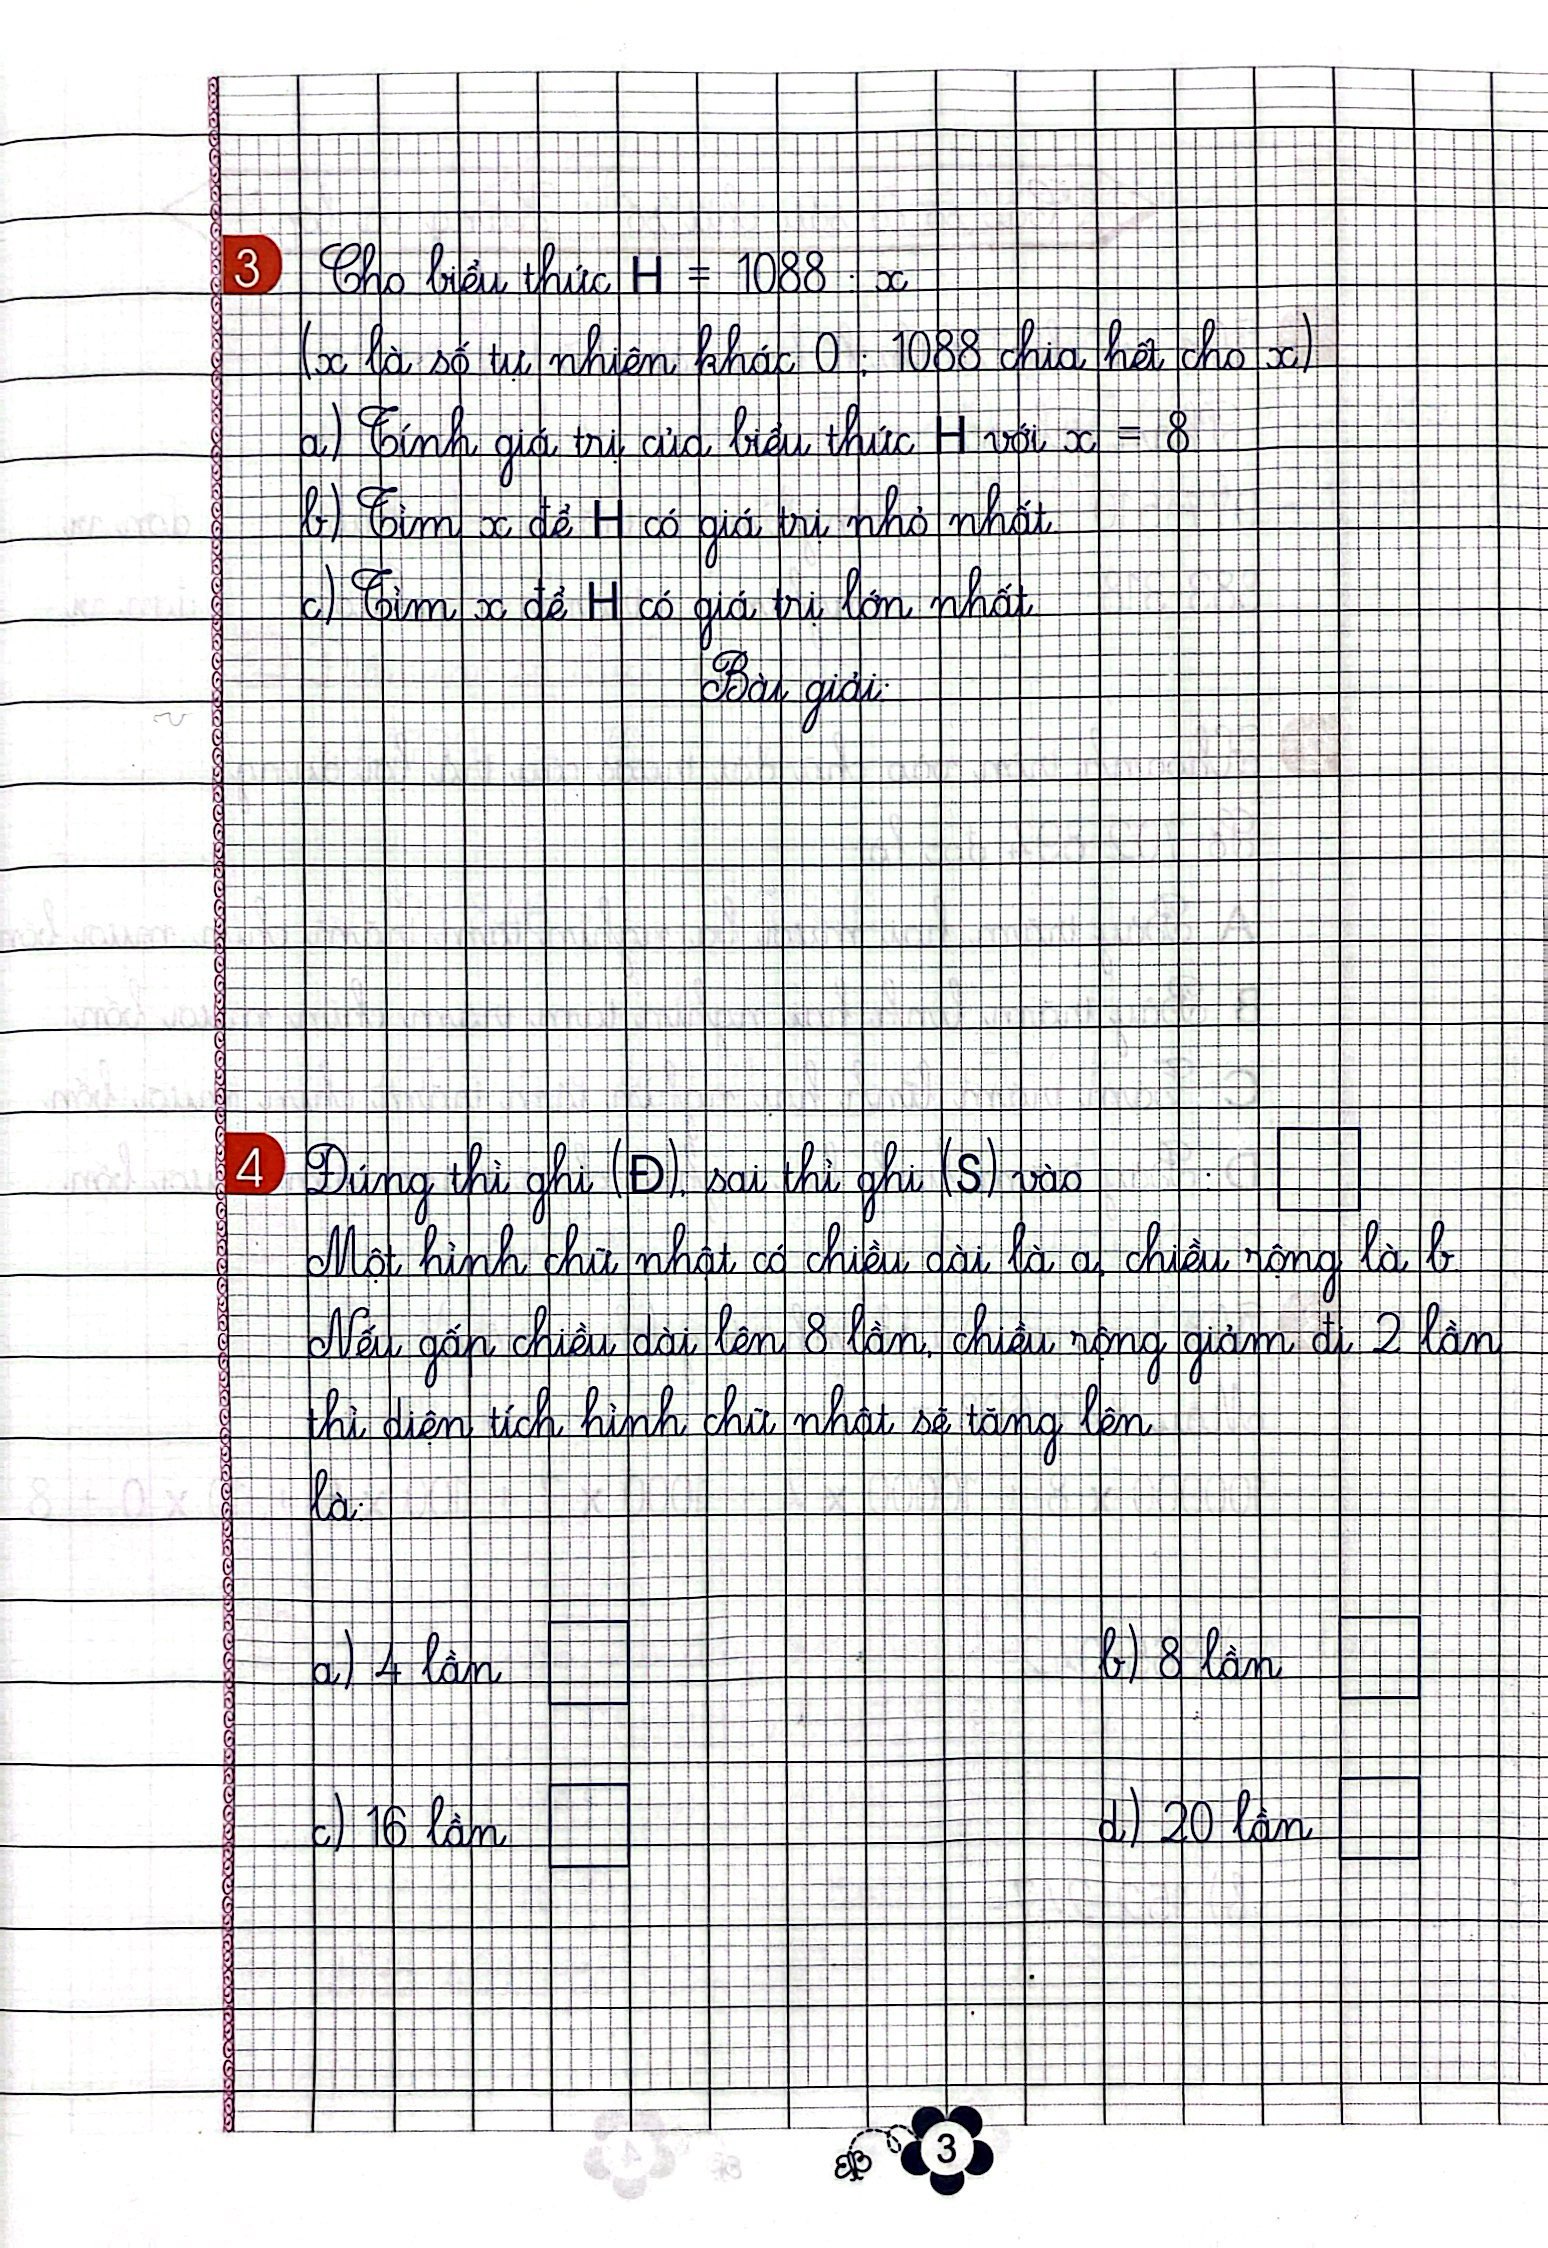 3 Cho biểu thức H = 1088 : x
(x là số tự nhiên khác 0; 1088 chia hết cho x)
a) Tính giá trị của biểu thức H với x = 8
b) Tìm x để H có giá trị nhỏ nhất
c) Tìm x để H có giá trị lớn nhất
Bài giải:
4 Đúng thì ghi (Đ), sai thì ghi (S) vào :
Một hình chữ nhật có chiều dài là a, chiều rộng là b.
Nếu gấp chiều dài lên 8 lần, chiều rộng giảm đi 2 lần
thì diện tích hình chữ nhật sẽ tăng lên
là:
a) 4 lần b) 8 lần
c) 16 lần d) 20 lần
3